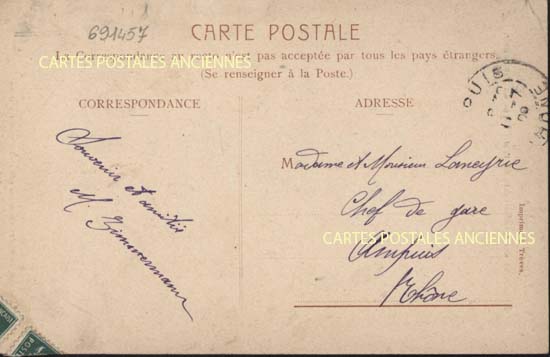 691457
CARTE POSTALE
La Correspondance au recto n'est pas acceptée par tous les pays étrangers.
CARTES POSTALES ANCIENNES
(Se renseigner à la Poste.)
CORRESPONDANCE
Souvenir et amitiés
M Zimmermann
ADRESSE
Madame et Monsieur Laneyrie
Chef de gare
CARTES POSTALES ANCIENNES
Ampuis
Rhône
PUIS
RHONE